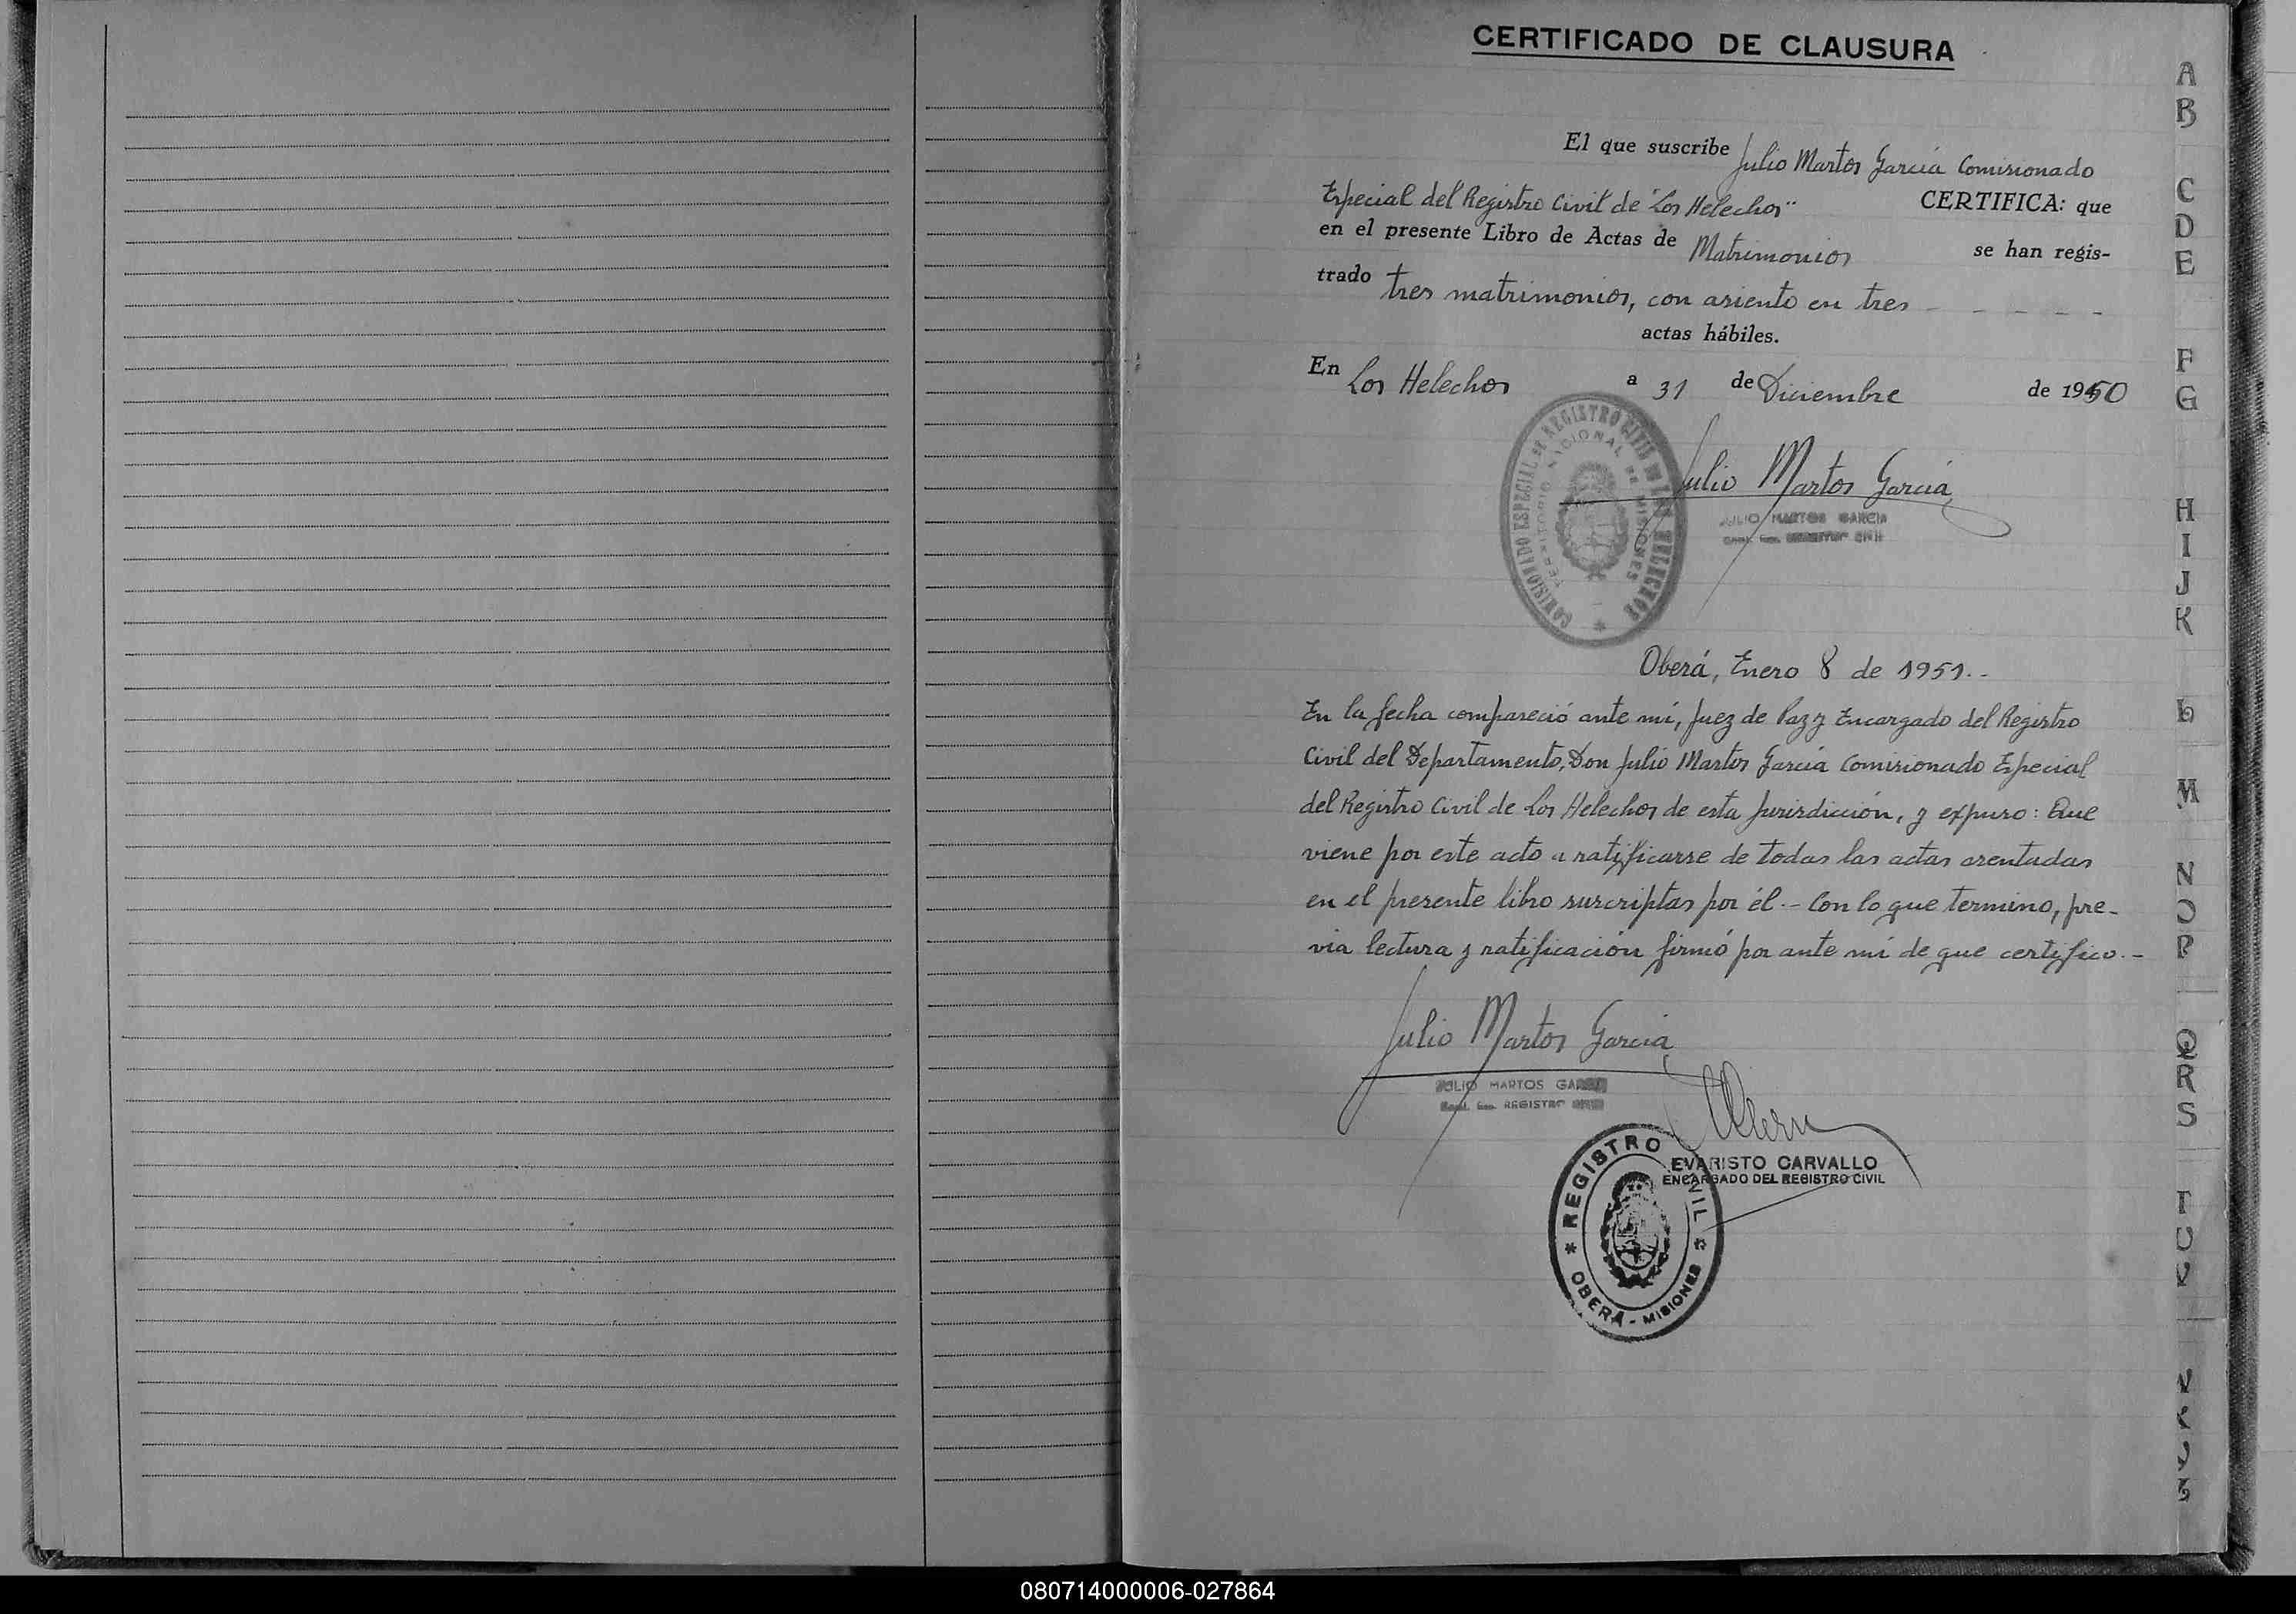 CERTIFICADO DE CLAUSURA
El que suscribe Julio Martos García Comisionado
Especial del Registro Civil de "Los Helechos" CERTIFICA: que
en el presente Libro de Actas de Matrimonios se han regis-
trado tres matrimonios, con asiento en tres - - - - -
actas hábiles.
En Los Helechos a 31 de Diciembre de 1950
COMISIONADO ESPECIAL DE REGISTRO CIVIL DE LOS HELECHOS
TERRITORIO NACIONAL DE MISIONES
Julio Martos García
JULIO MARTOS GARCIA
REGISTRO CIVIL
Oberá, Enero 8 de 1951.-
En la fecha compareció ante mí, Juez de Paz y Encargado del Registro
Civil del Departamento, Don Julio Martos García Comisionado Especial
del Registro Civil de Los Helechos de esta Jurisdicción, y expuso: Que
viene por este acto a ratificarse de todas las actas asentadas
en el presente libro suscriptas por él.- Con lo que termino, pre-
via lectura y ratificación firmó por ante mí de que certifico.-
Julio Martos García
JULIO MARTOS GARCIA
REGISTRO CIVIL
EVARISTO CARVALLO
ENCARGADO DEL REGISTRO CIVIL
* REGISTRO CIVIL *
OBERÁ - MISIONES
A
B
C
D
E
F
G
H
I
J
K
L
M
N
O
P
Q
R
S
T
U
V
080714000006-027864